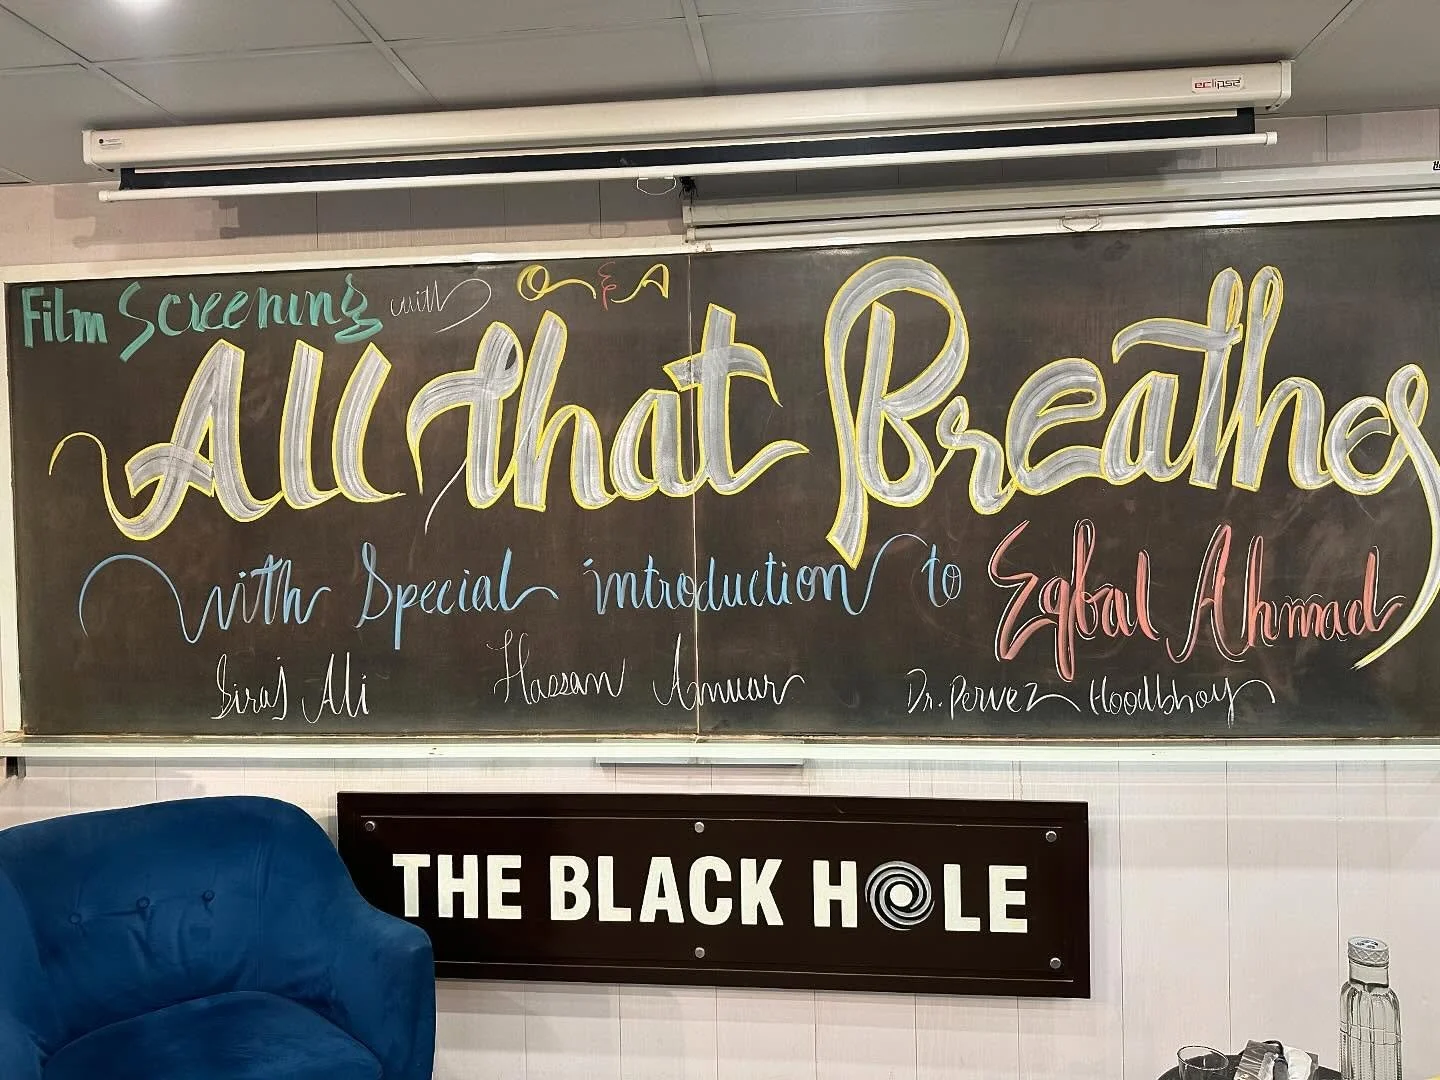 eclipse
Film Screening with Q & A
All that Breathes
with Special introduction to Eqbal Ahmad
Siraj Ali Hassan Annuar Dr. Pervez Hoodbhoy
THE BLACK HOLE